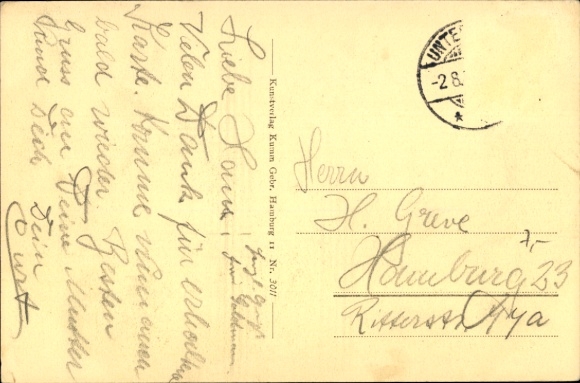 Liebe Hans!
Vielen Dank für erhaltene
Karte. Komme nun auch
bald wieder. Besten
Gruss an Deine Mutter
und Dich
Dein
Curt
Kunstverlag Kumm Gebr. Hamburg 11 Nr. 3011
UNTE
-2.8.
Herrn
H. Greve
7,-
Hamburg 23
Ritterstr.